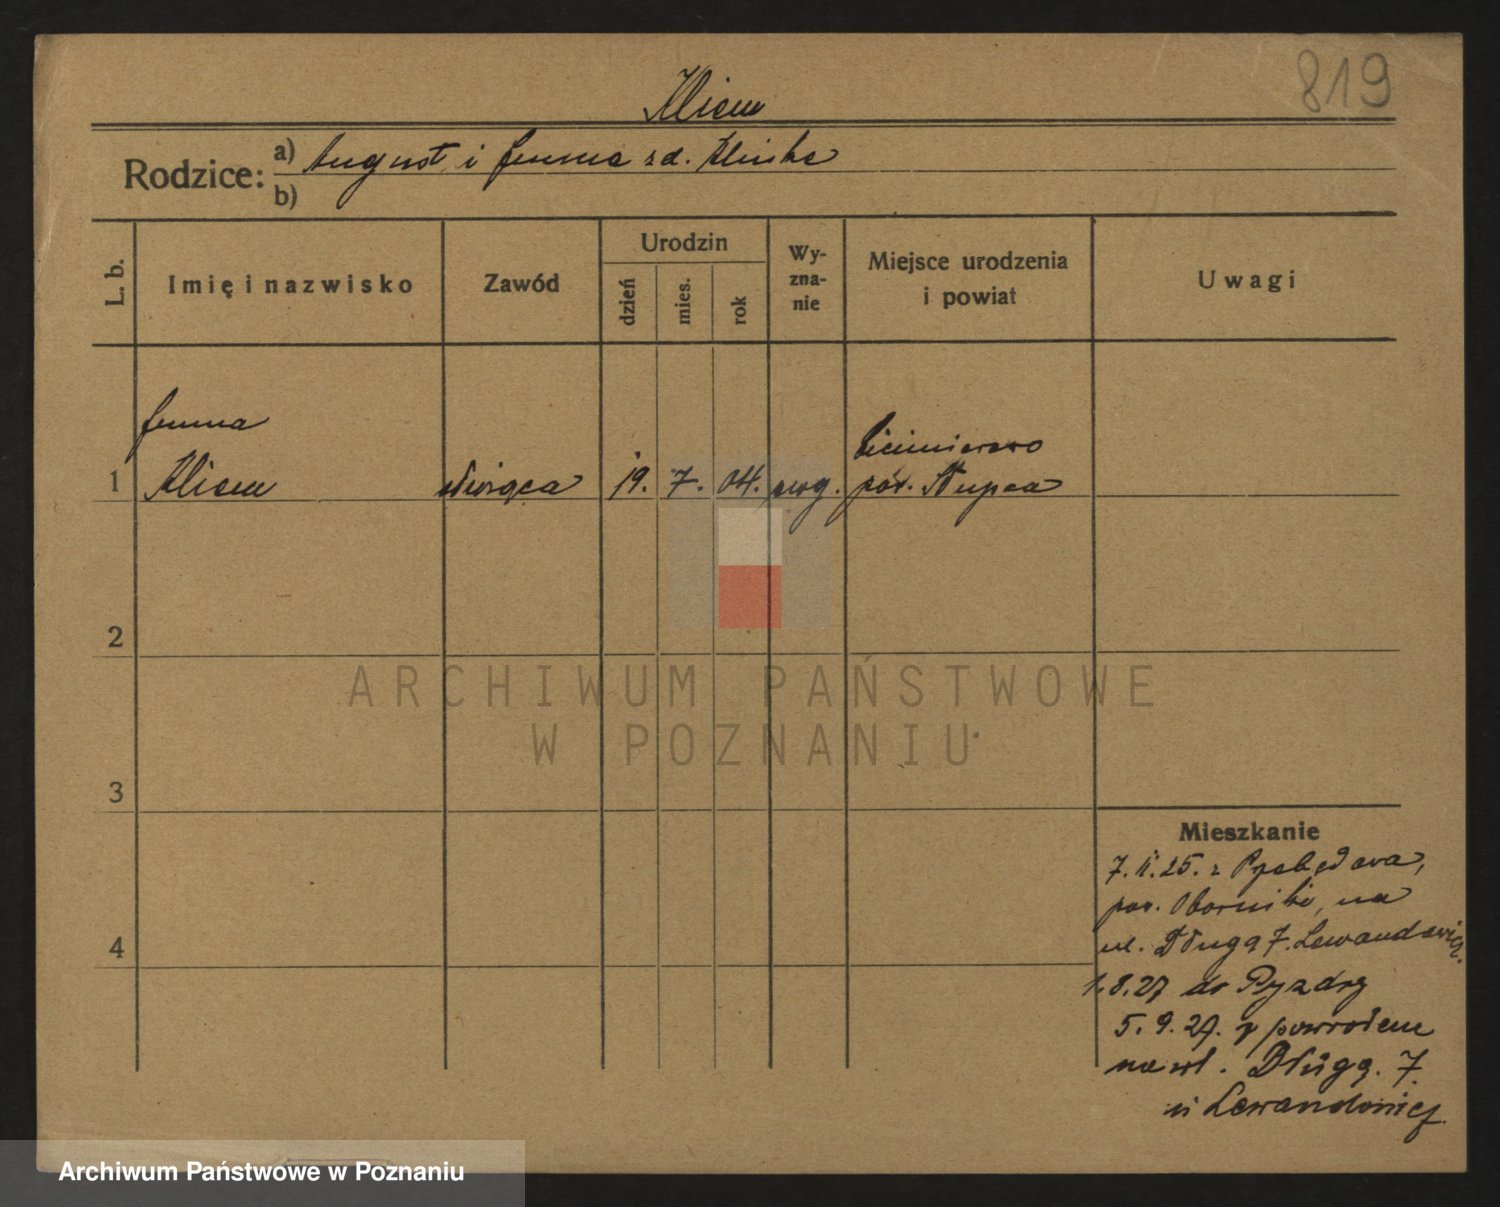 819
Kliem
Rodzice: a) August i Emma zd. Klinke
b)
L. b.
Imię i nazwisko
Zawód
Urodzin
dzień
mies.
rok
Wy-
zna-
nie
Miejsce urodzenia
i powiat
Uwagi
Emma
1 Kliem służąca 19. 7. 04. ewg.
Ciemierowo
pow. Słupca
2
ARCHIWUM PAŃSTWOWE
W POZNANIU
3
4
Mieszkanie
7. 11. 25. z
pow. Oborniki, na
ul. Długą 7. Lewandowicz.
1.8.27 do Pyzdry
5. 9. 27. z powrotem
na ul. Długą. 7.
u Lewandowicz
Archiwum Państwowe w Poznaniu